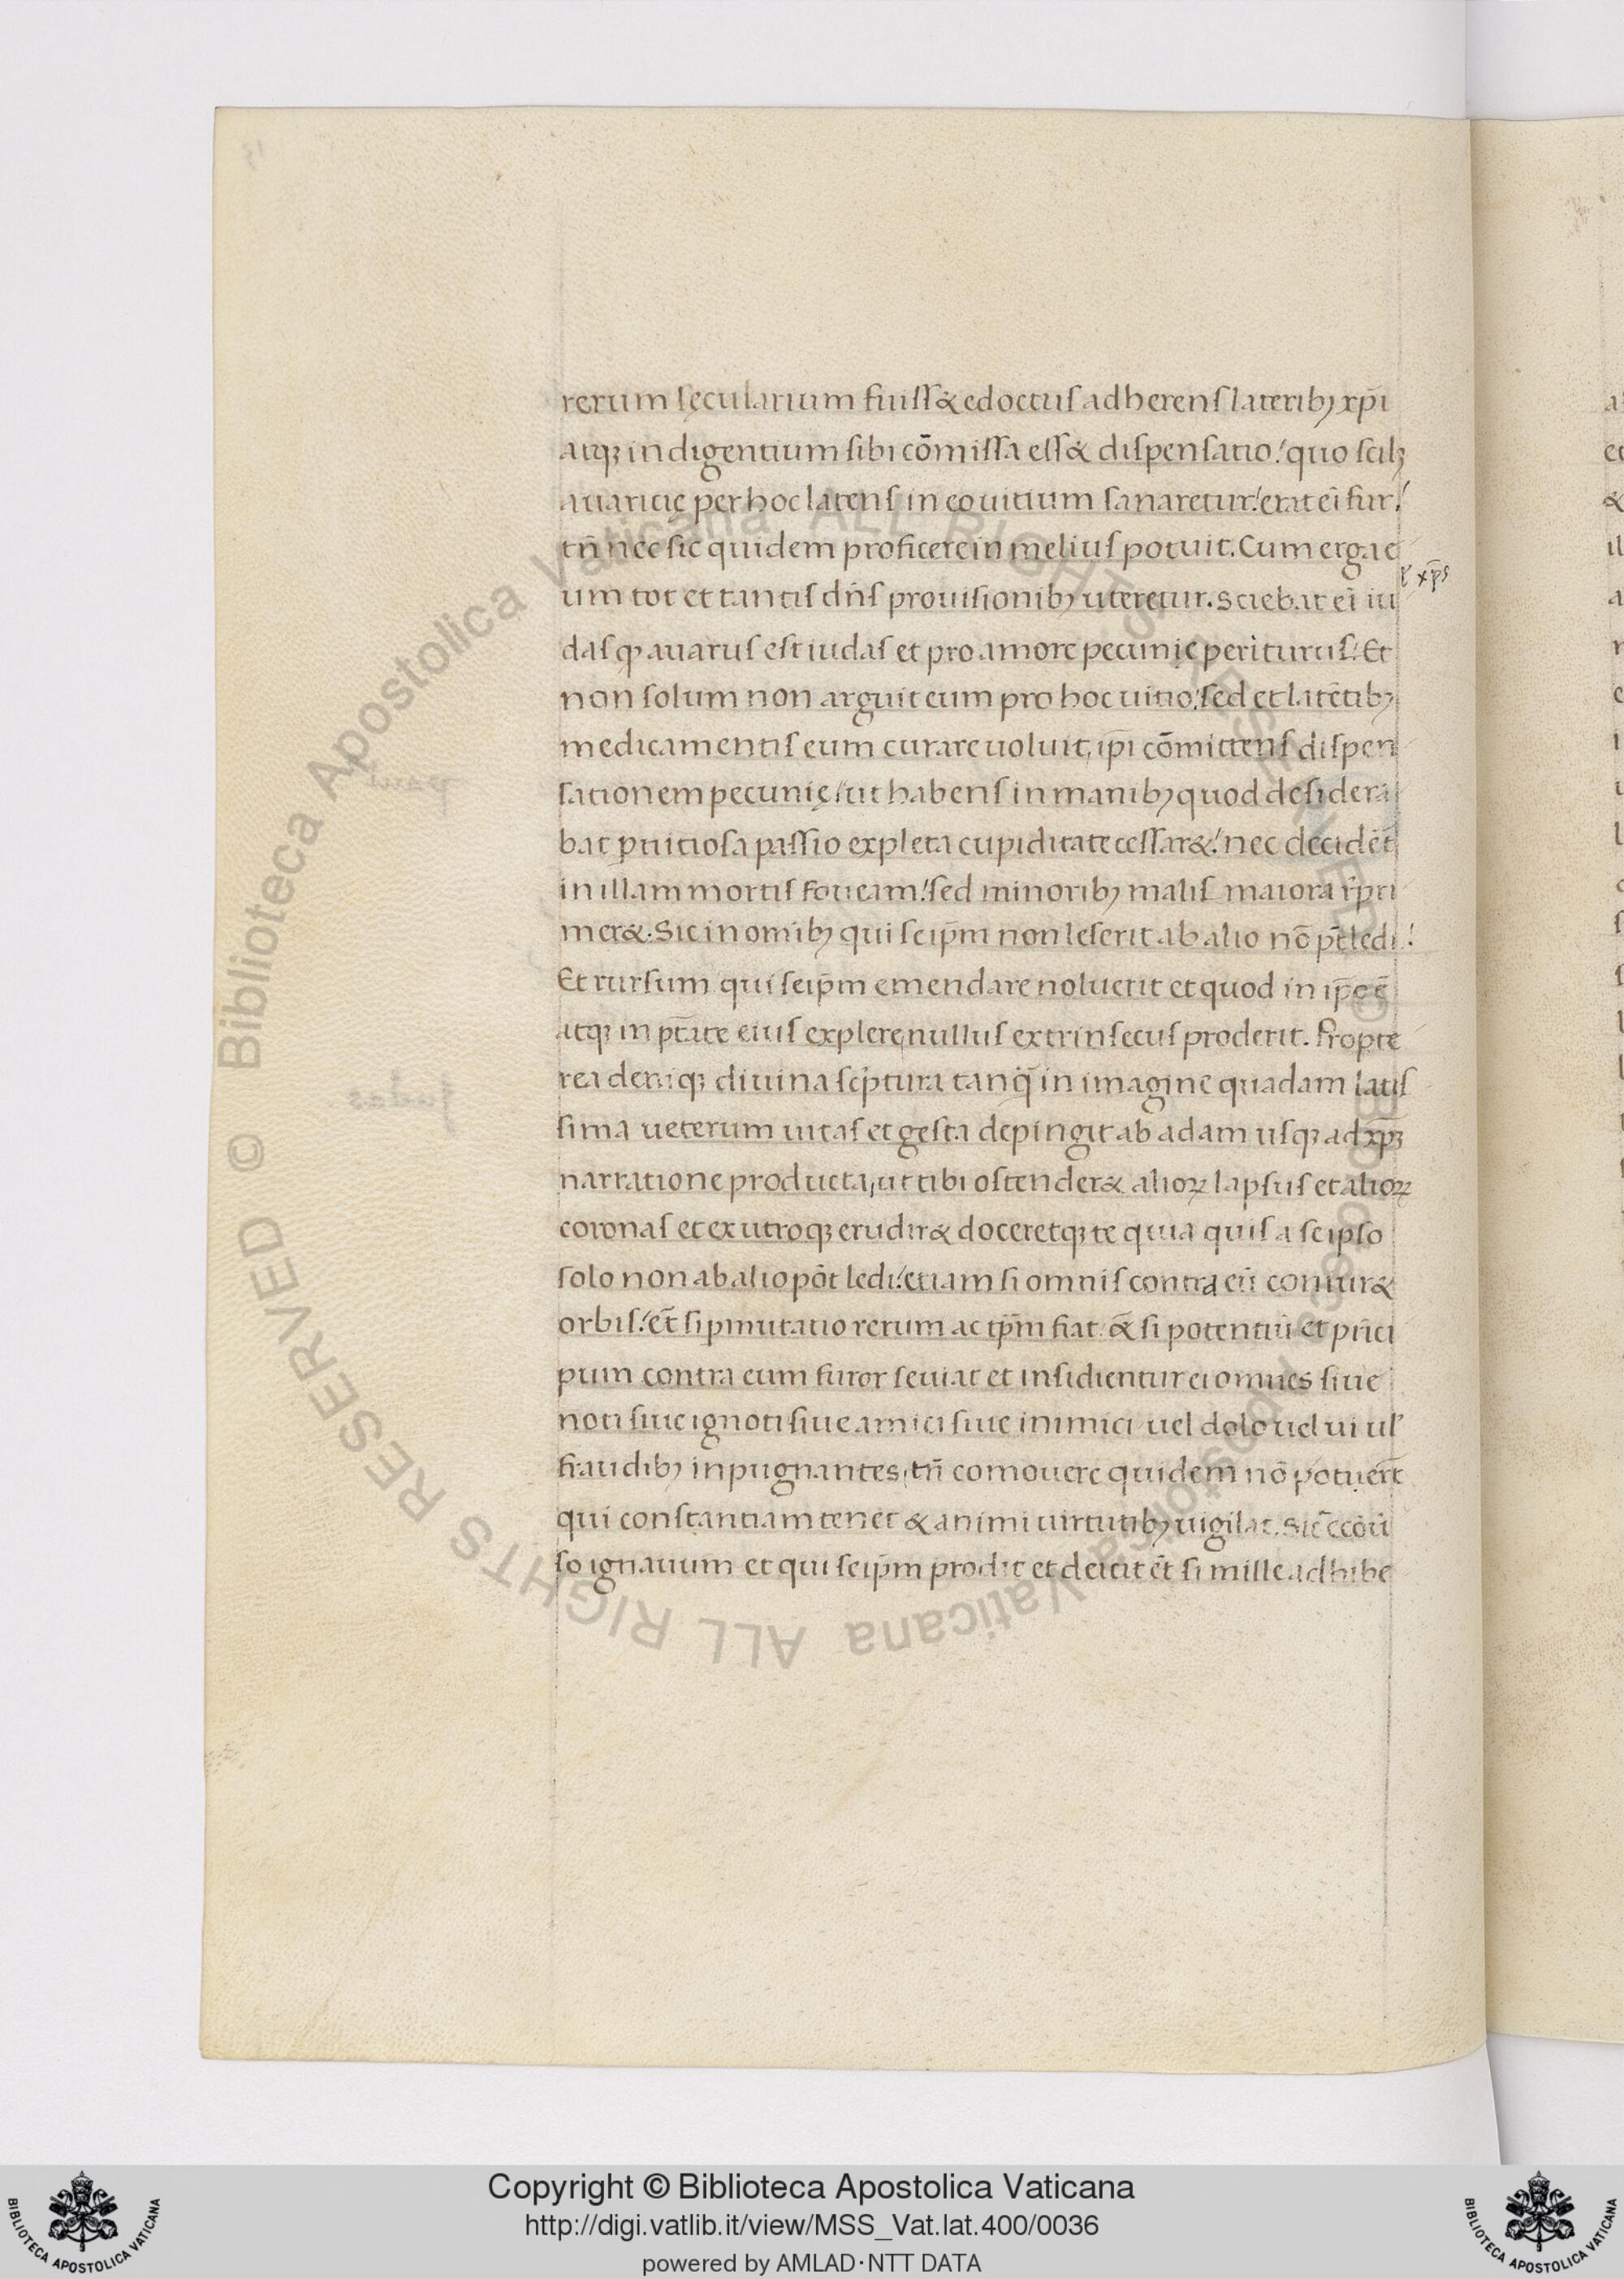 rerum sęcularium fuiss& edoctus adherens laterib; xp̄i
atq; indigentium sibi cōmissa ess& dispensatio! quo scil;
auaricię per hoc latens in eo uitium sanaretur! erat eī fur!
tn̄ nec sic quidem proficere in melius potuit. Cum erga e
um tot et tantis dn̄s prouisionib; uteretur. sciebat eī iu
xp̄s
das qđ auarus est iudas et pro amore pecunię periturus! Et
non solum non arguit eum pro hoc uitio! sed et latētib;
medicamentis eum curare uoluit, ip̄i cōmittens dispen
sationem pecunię! ut habens in manib; quod desidera
bat pnitiosa passio expleta cupiditate cessar&! nec decidēt
in illam mortis foueam! sed minorib; malis maiora rp̄ri
mer&. Sic in omīb; qui seip̄m non leserit ab alio nō pt̄ ledi!
Et rursum qui seip̄m emendare noluerit et quod in ip̄o ē
atq; in pt̄ate eius explere, nullus extrinsecus proderit. Propte
rea deniq; diuina scp̄tura tanq̄ in imagine quadam latis
sima ueterum uitas et gesta depingit ab adam usq; ad xp̄m
narratione producta, ut tibi ostender& alioꝝ lapsus et alioꝝ
coronas et ex utroq; erudir& doceretq; te quia quis a seipso
solo non ab alio pōt ledi! etiam si omnis contra eū coniur&
orbis! et̄ si pmutatio rerum ac tp̄m fiat. &̄ si potentiū et prīci
pum contra eum furor seuiat et insidientur ei omnes siue
noti siue ignoti siue amici siue inimici uel dolo uel ui ul'
fraudib; inpugnantes, tn̄ comouere quidem nō potuert̄
qui constantiam tenet & animi uirtutib; uigilat. Sic
so ignauum et qui seip̄m prodit et deicit et̄ si mille adhibe
Copyright © Biblioteca Apostolica Vaticana
http://digi.vatlib.it/view/MSS_Vat.lat.400/0036
powered by AMLAD·NTT DATA